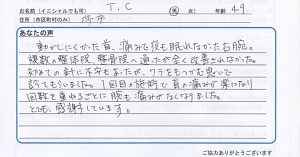 お名前(イニシャルでも可) T.C 男・女 年齢 49
住所(市区町村のみ) 堺市
あなたの声
動かしにくかった首、痛みで夜も眠れなかった右腕。
複数の整体院、整骨院へ通ったが全く改善されなかった。
初めての針に不安もあったが、ワラをもつかむ思いで
診てもらいました。1回目の診断で首の痛みが楽になり
回数を重ねるごとに腕も痛みがなくなりました。
とても、感謝しています。
ご協力ありがとうございます